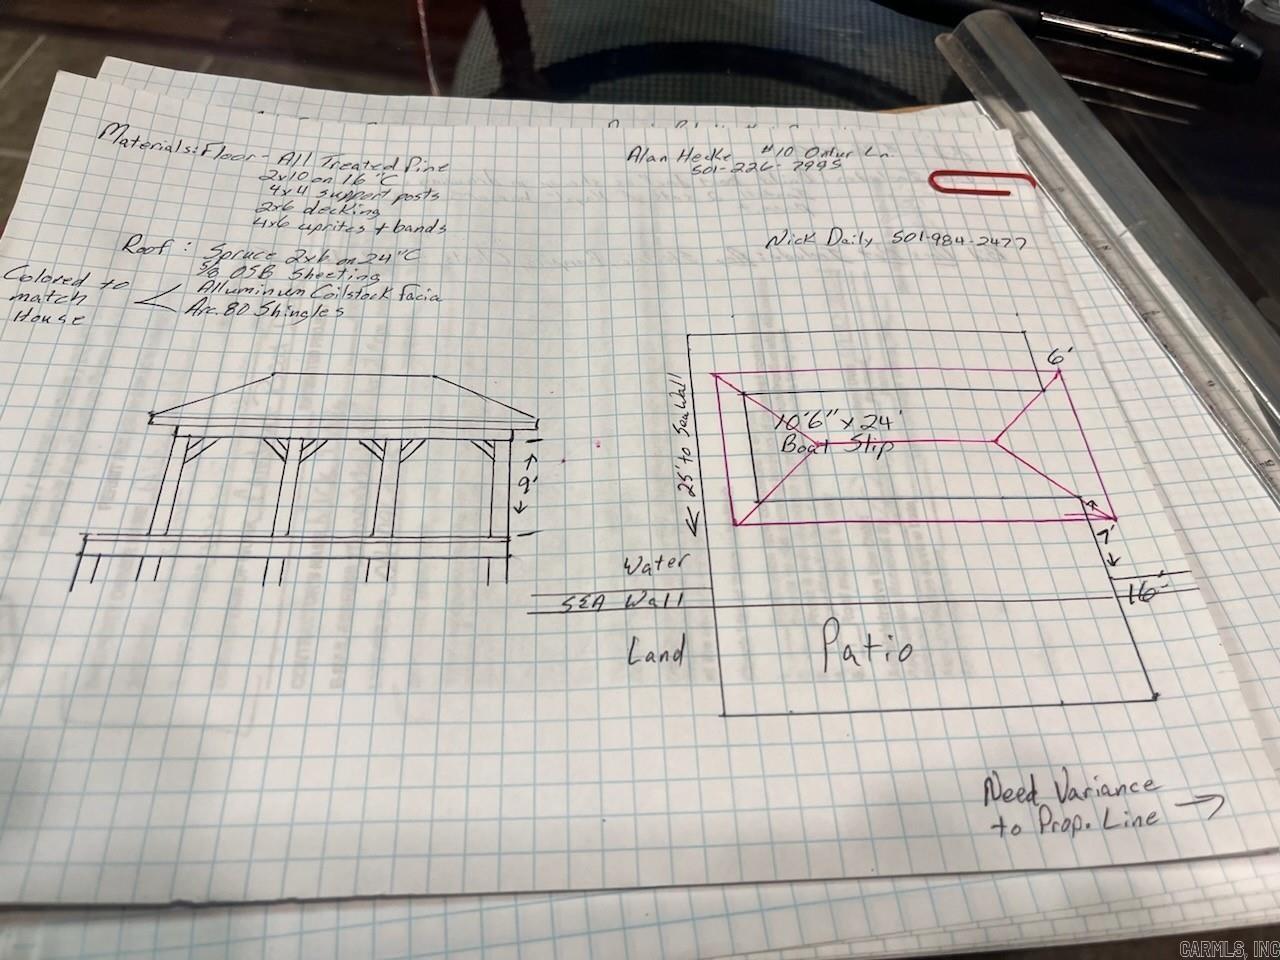 Materials: Floor - All Treated Pine
2x10 on 16"C
4x4 support posts
2x6 decking
4x6 uprites + bands
Roof: Spruce 2x6 on 24"C
5/8 OSB Sheeting
Alluminum Coilstock facia
Arc. 80 Shingles
Colored to
match
House
Alan Hecke #10 Ln.
501-226-7995
Nick Daily 501-984-2477
9'
25' to Sea Wall
6'
10'6" x 24'
Boat Slip
7'
16'
Water
SEA Wall
Land
Patio
Need Variance
to Prop. Line
CARMLS, INC